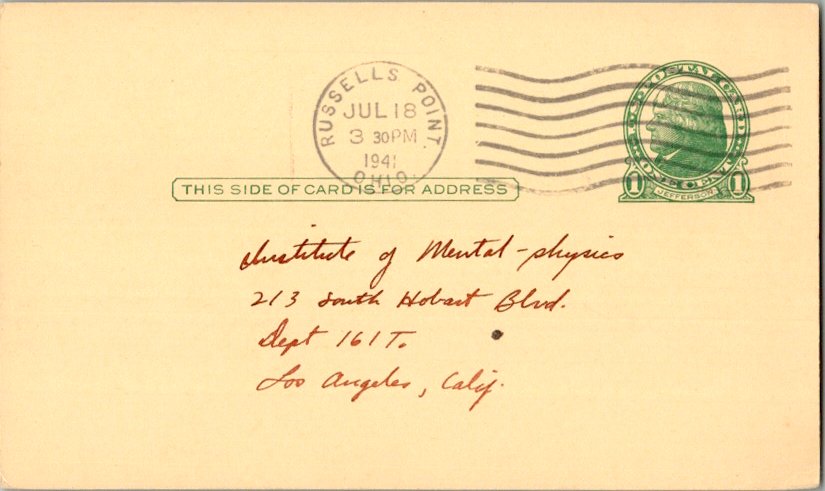 RUSSELLS POINT,
JUL 18
3 30PM
1941
OHIO.
U.S. POSTAL CARD
ONE CENT
1 JEFFERSON 1
THIS SIDE OF CARD IS FOR ADDRESS
Institute of Mental-physics
213 South Hobart Blvd.
Dept 161T.
Los Angeles, Calif.